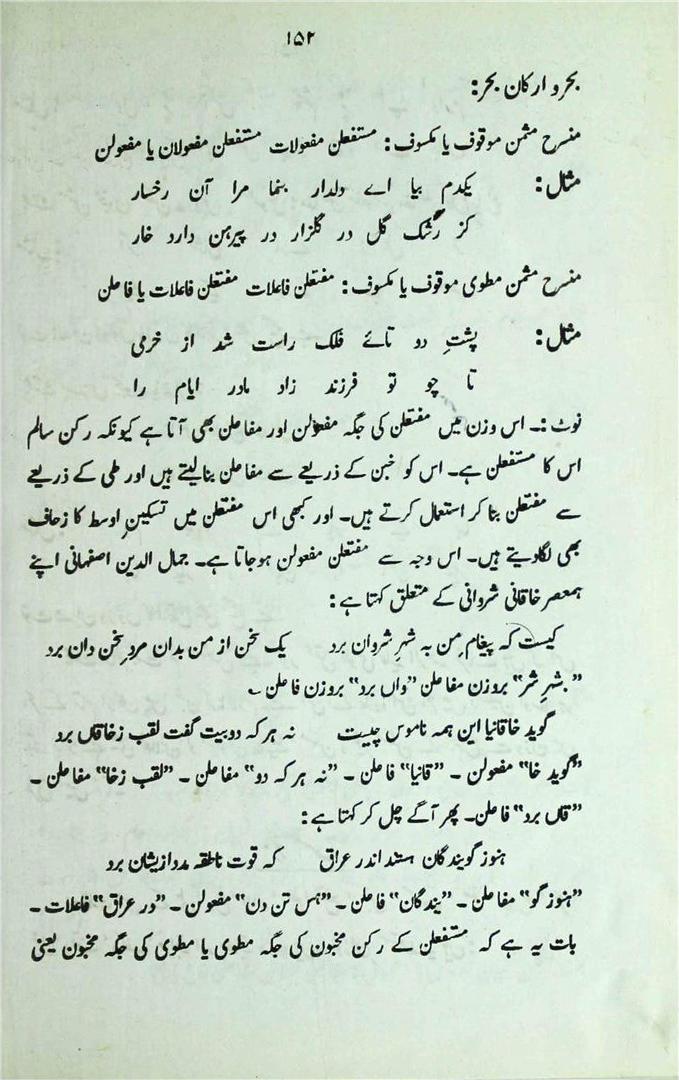 ۱۵۲
بحر و ارکان بحر:
منسرح مثمن موقوف یا مکسوف: مستفعلن مفعولات مستفعلن مفعولان یا مفعولن
مثال: یکدم بیا اے دلدار بنما مرا آن رخسار
کز رشک گل در گلزار در پیرہن دارد خار
منسرح مثمن مطوی موقوف یا مکسوف: مفتعلن فاعلات مفتعلن فاعلات یا فاعلن
مثال: پشتِ دو تائے فلک راست شد از خرمی
تا چو تو فرزند زاد مادر ایام را
نوٹ:۔ اس وزن میں مفتعلن کی جگہ مفعولن اور مفاعلن بھی آتا ہے کیونکہ رکن سالم
اس کا مستفعلن ہے۔ اس کو خبن کے ذریعے سے مفاعلن بنالیتے ہیں اور طی کے ذریعے
سے مفتعلن بنا کر استعمال کرتے ہیں۔ اور کبھی اس مفتعلن میں تسکینِ اوسط کا زحاف
بھی لگادیتے ہیں۔ اس وجہ سے مفتعلن مفعولن ہوجاتا ہے۔ جمال الدین اصفہانی اپنے
ہمعصر خاقانی شروانی کے متعلق کہتا ہے:
کیست کہ پیغام من بہ شہرِ شروان برد یک سخن از من بدان مردِ سخن دان برد
”بشہرِ شر“ بروزن مفاعلن ”واں برد“ بروزن فاعلن ۔
گوید خاقانیا این ہمہ ناموس چیست نہ ہر کہ دو بیت گفت لقب زخاقاں برد
”گوید خا“ مفعولن ۔ ”قانیا“ فاعلن ۔ ”نہ ہر کہ دو“ مفاعلن ۔ ”لقب زخا“ مفاعلن ۔
”قاں برد“ فاعلن۔ پھر آگے چل کر کہتا ہے:
ہنوز گویندگان ہستند اندر عراق کہ قوت ناطقہ مدد ازیشان برد
”ہنوز گو“ مفاعلن ۔ ”یندگان“ فاعلن ۔ ”ہس تن دن“ مفعولن ۔ ”در عراق“ فاعلات ۔
بات یہ ہے کہ مستفعلن کے رکن مخبون کی جگہ مطوی یا مطوی کی جگہ مخبون یعنی